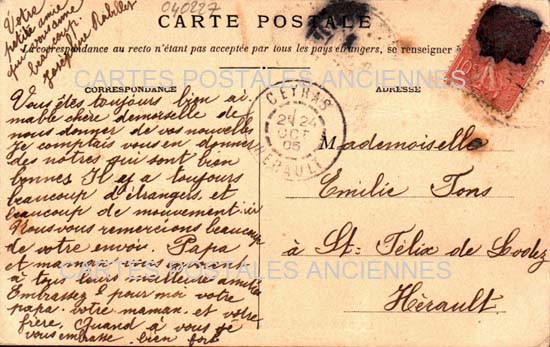 040227
CARTE POSTALE
La correspondance au recto n'étant pas acceptée par tous les pays étrangers, se renseigner à
CARTES POSTALES ANCIENNES
CORRESPONDANCE
ADRESSE
Votre
petite amie
qui vous aime
beaucoup
Joséphine
Vous êtes toujours bien ai-
mable chère demoiselle de
nous donner de vos nouvelles
Je comptais vous en donner
des nôtres qui sont bien
bonnes. Il y a toujours
beaucoup d'étrangers et
beaucoup de mouvement ici
Nous vous remercions beaucoup
de votre envoi. Papa
et maman vous envoient
à tous leurs meilleures amitiés
Embrassez pour moi votre
papa votre maman et votre
frère. Quand à vous je
vous embrasse bien fort
CEYRAS
24
OCT
05
HERAULT
Mademoiselle
Emilie Tons
à St. Félix de Lodez
Hérault
CARTES POSTALES ANCIENNES